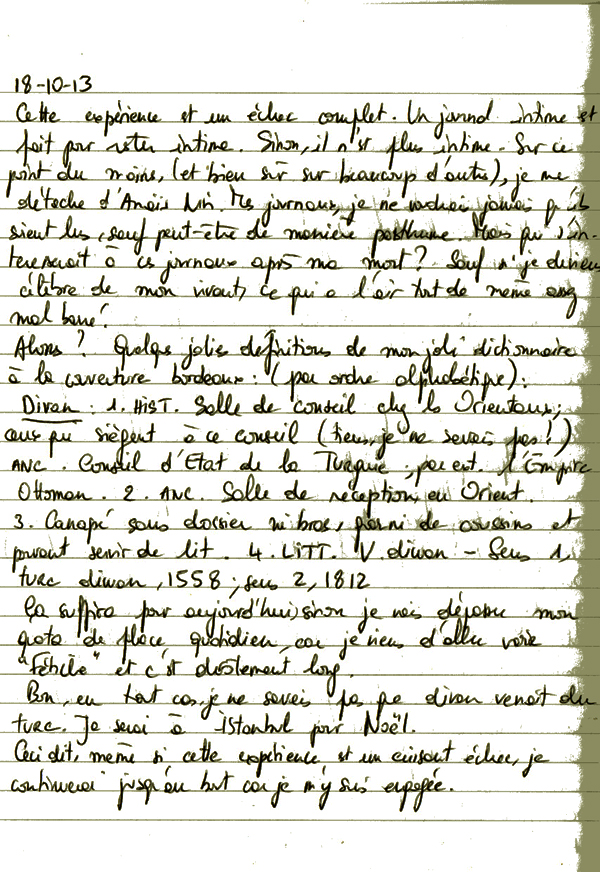 18-10-13
Cette expérience est un échec complet. Un journal intime est
fait pour rester intime. Sinon, il n'est plus intime. Sur ce
point du moins, (et bien sûr sur beaucoup d'autres), je me
détache d'Anaïs Nin. Mes journaux, je ne voudrai jamais qu'ils
soient lus, sauf peut-être de manière posthume. Mais qui s'in-
téresserait à ces journaux après ma mort? Sauf si je deviens
célèbre de mon vivant, ce qui a l'air tout de même
mal barré!
Alors? Quelques jolies definitions de mon joli dictionnaire
à la couverture bordeaux: (par ordre alphabétique):
Divan: 1. HIST. Salle de conseil chez les Orientaux;
ceux qui siègent à ce conseil (tiens, je ne savais pas!)
ANC. Conseil d'Etat de la Turquie; par ext. l'Empire
Ottoman. 2. ANC. Salle de réception, en Orient.
3. Canapé sans dossier ni bras, garni de coussins et
pouvant servir de lit. 4. LITT. V. diwan - Sens 1,
turc diwan, 1558; sens 2, 1812
Ça suffira pour aujourd'hui, sinon je vais dépasser mon
quota de place, quotidien, car je viens d'aller voir
"Fébrile" et c'est drôlement long.
Bon, en tout cas, je ne savais pas que divan venait du
turc. Je serai à İstanbul pour Noël.
Ceci dit, même si cette expérience est un cuisant échec, je
continuerai jusqu'au bout car je m'y suis engagée.